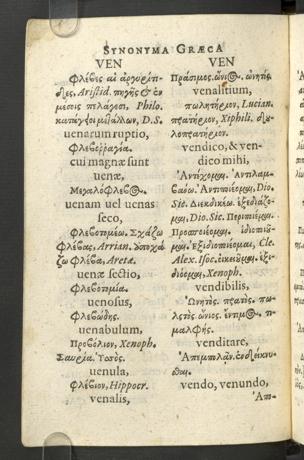 SYNONYMA GRÆCA
VEN
Φλέβες αἱ ἀργυρίτι-
δες, Aristid. πηγῆς & ἐν
μέσοις πελάγεσι, Philo.
μετάλλων, D.S.
uenarum ruptio,
Φλεβοῤῥαγία.
cui magnæ sunt
uenæ,
Μεγαλόφλεβος.
uenam uel uenas
seco,
Φλεβοτομέω. Σχάζω
φλέβας, Arrian. ὑποχά
ζω φλέβα, Aretæ.
uenæ sectio,
Φλεβοτομία.
uenosus,
Φλεβώδης.
uenabulum,
Προβόλιον, Xenoph.
Σαυρία. Ὑσσός.
uenula,
Φλέβιον, Hippocr.
venalis,
VEN
Πράσιμος. ὤνιος. ὠνητός.
venalitium,
πωλητήριον, Lucian.
πρατήριον, Xiphili. δου
λοπρατήριον.
vendico, & ven-
dico mihi,
Ἀντέχομαι. Ἀντιλαμ-
βάνω. Ἀντιποιέομαι, Dio.
Sic. Διεκδικέω. ἐξιδιάζο-
μαι, Dio. Sic. Περιποιέομαι.
Προσποιέομαι. ἰδιοποιέ-
ομαι. ἐξιδιοποιέομαι, Cle.
Alex. Isoc. ἐξι-
διόομαι, Xenoph.
vendibilis,
Ὠνητὸς. πρατὸς. πω-
λητὸς ὤνιος. ἔντιμος. τι-
μαλφής.
venditare,
Ἀπεμπολᾶν. ἐνδείκνυ-
σθαι.
vendo, venundo,
Ἀπο-